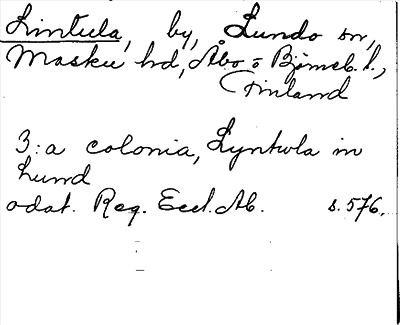 Lintula, by, Lundo sn,
Masku hd, Åbo o Björneb. l.,
Finland
3:a colonia, Lyntula in
Lund
odat. Reg. Eccl. Ab. s. 576.